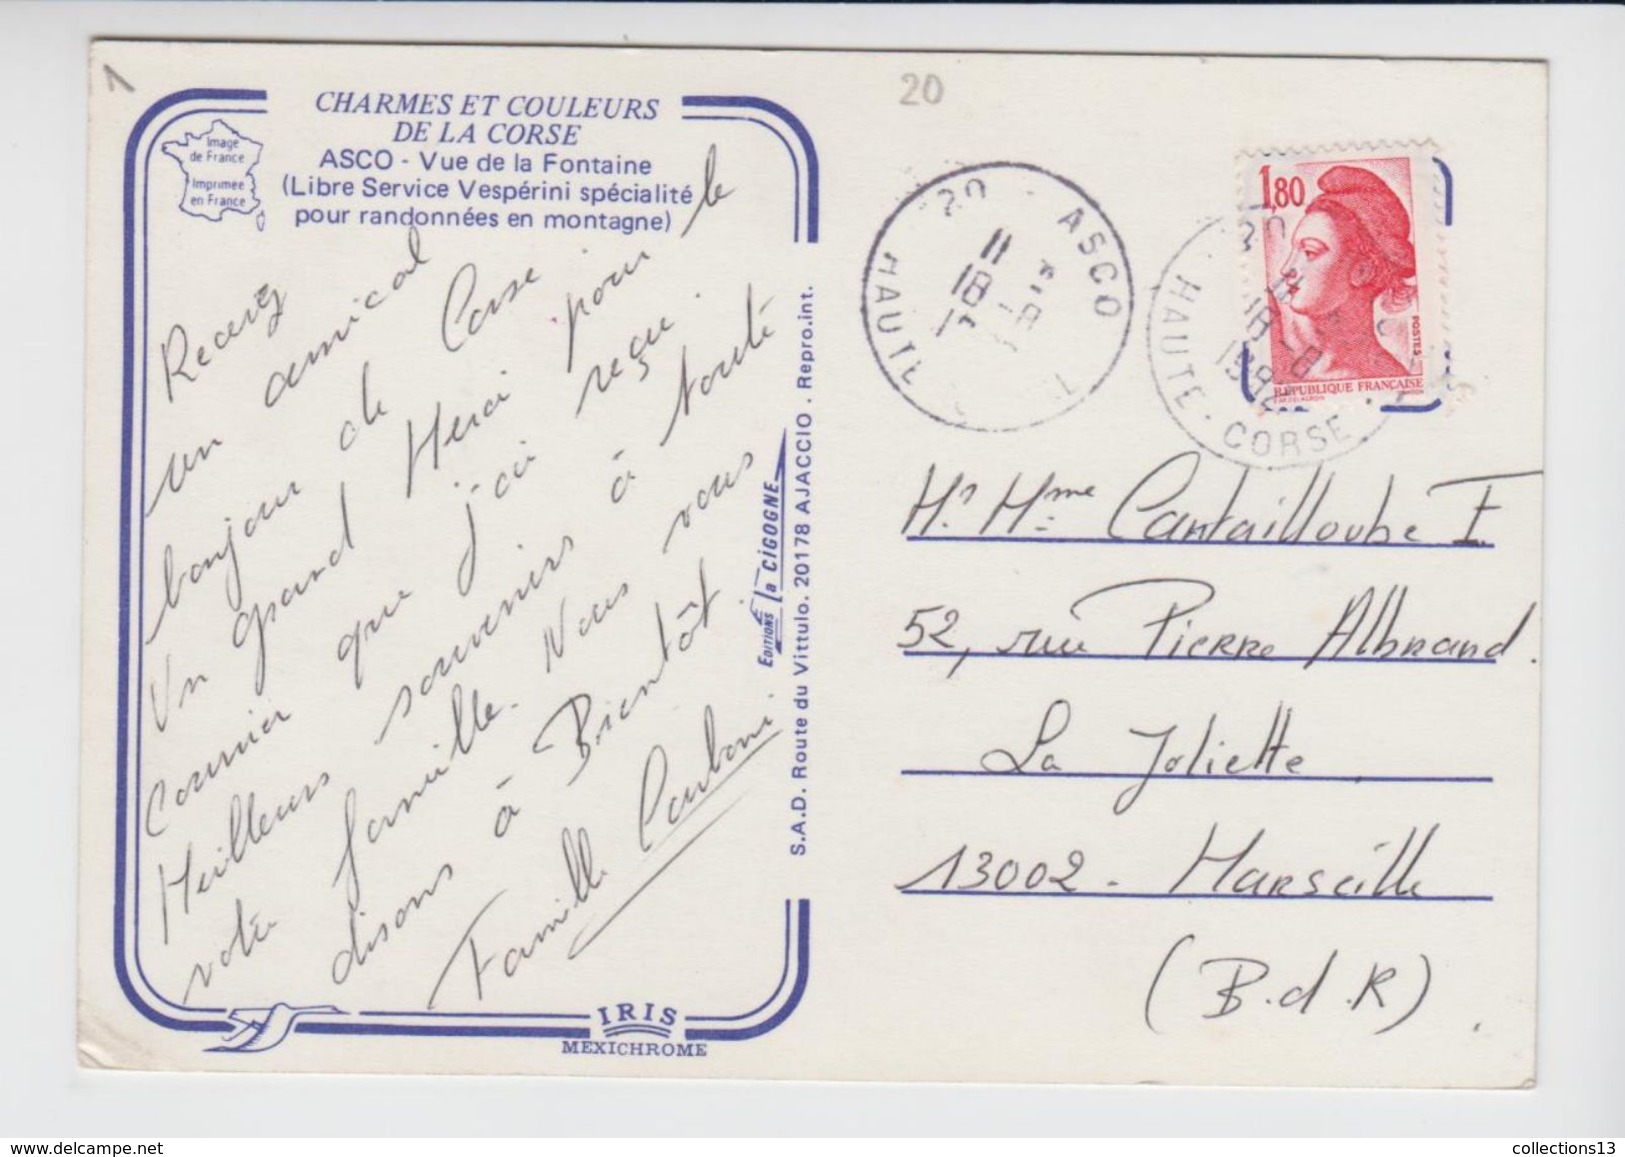 1
20
CHARMES ET COULEURS
DE LA CORSE
ASCO - Vue de la Fontaine
(Libre Service Vespérini spécialité
pour randonnées en montagne)
Image
de France
Imprimée
en France
Recevez
un amical
bonjour de Corse
Un grand Merci pour le
courrier que j'ai reçu.
Meilleurs souvenirs à toute
votre famille. Nous vous
disons à Bientôt.
Famille Carboni.
EDITIONS la CIGOGNE
S.A.D. Route du Vittulo. 20178 AJACCIO . Repro.int.
IRIS
MEXICHROME
20 ASCO
HAUTE
11
18
20
HAUTE-CORSE
18
1,80
POSTES
REPUBLIQUE FRANÇAISE
Mr Mme Cantailloube F.
52, rue Pierre Albrand.
La Joliette
13002 - Marseille
(B.d.R).
collections13